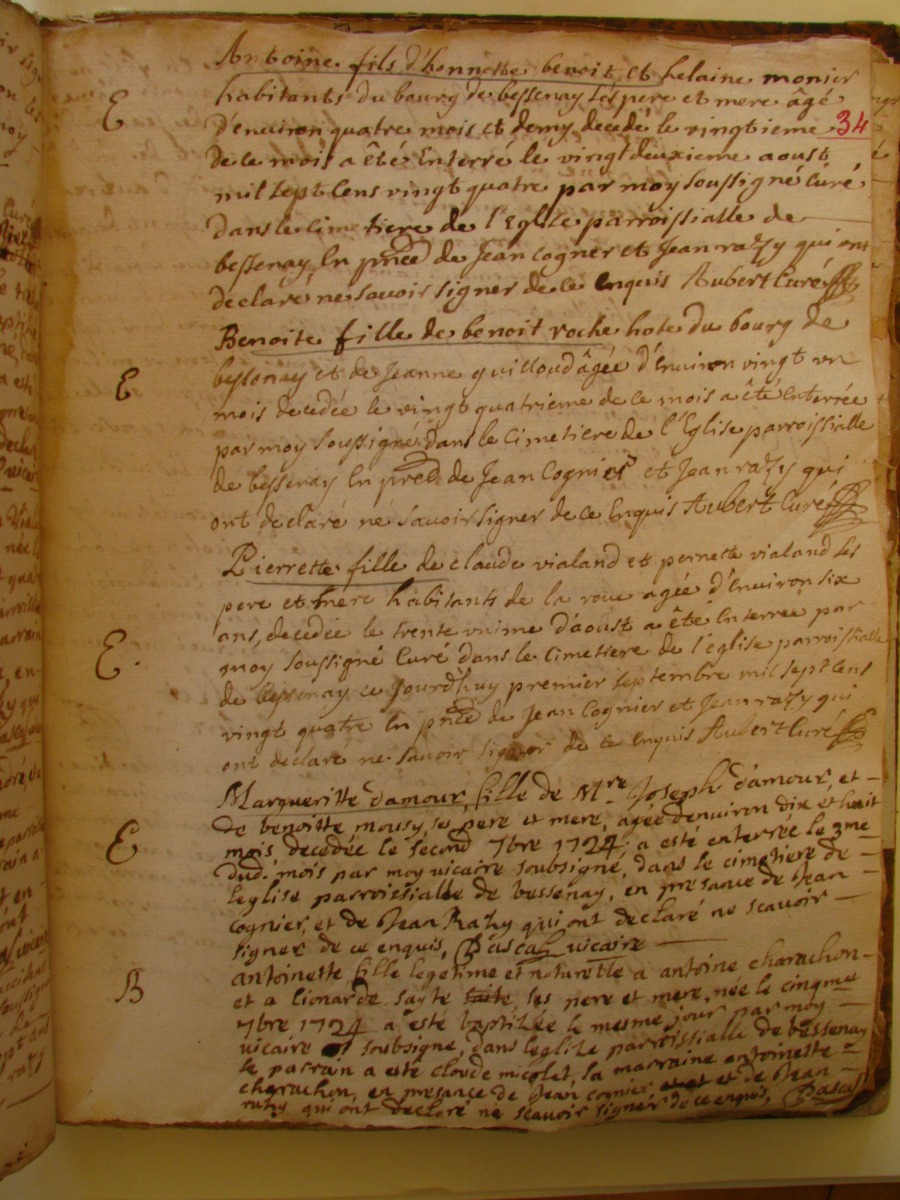 Antoine fils d'honneste benoit et helaine monier
E
habitants du bourg de bessenay ses pere et mere âgé
d'environ quatre mois et demy decedé le vingtieme 34
de ce mois a êté Enterré le vingtdeuxieme aoust
mil sept Cens vingt quatre par moy soussigné Curé
dans le Cimetiere de l'Eglise parroissialle de
bessenay En pñce de Jean Cogner et Jean razy qui ont
declaré ne savoir signer de ce enquis Aubert Curé
Benoite fille de benoit roche hote du bourg de
E
bessenay et de Jeanne guilloud âgée d'Environ vingt un
mois decedée le vingt quatrieme de ce mois a êté enterrée
par moy soussigné dans le Cimetiere de l'Eglise parroissialle
de bessenay En pñce de Jean Cognier et Jean razy qui
ont declaré ne savoir signer de ce Enquis Aubert Curé
Pierrette fille de claude vialand et pernette vialand ses
pere et mere habitants de la roue agée d'Environ six
ans, decedée le trente unime d'aoust a êté Enterrée par
E.
moy soussigné Curé dans le Cimetiere de l'église parroissialle
de bessenay ce Jourdhuy premier septembre mil sept Cens
vingt quatre En pñce de Jean Cognier et Jean razy qui
ont declaré ne savoir signer de ce Enquis Aubert Curé
Margueritte d'amour, fille de Mre. Joseph d'amour, et
de benoitte moussy, ses pere et mere, agée denuiron dix et huit
E
mois, decedée le second 7bre 1724. a esté enterrée le 3me
dud. mois par moy vicaire soubsigné, dans le cimetiere de
leglise parroissialle de bessenay, en presance de Jean
cognier, et de Jean Razy qui ont declaré ne scavoir
signer de ce enquis, Pascal vicaire
antoinette fille legetime et naturelle a antoine charachon
B
et a lionarde sayte ses pere et mere, née le cinqme
7bre 1724 a esté baptizée le mesme jour par moy
vicaire soubsigné, dans leglize parroissialle de bessenay
le parrain a esté claude micolet, la marraine antoinette
charachon, en presance de Jean cognier et de Jean
razy qui ont declaré ne scavoir signer de ce enquis, Pascal